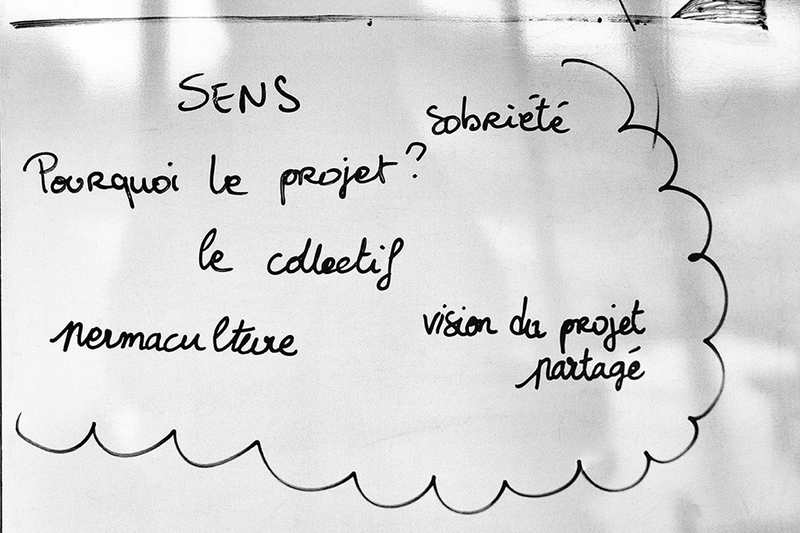 SENS
sobriété
Pourquoi le projet ?
le collectif
permaculture
vision du projet
partagé